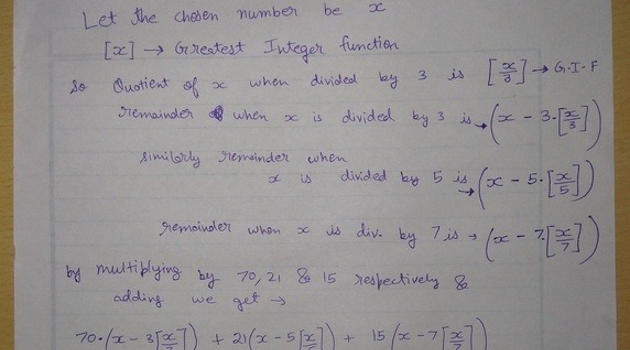 Let the chosen number be x
[x] → Greatest Integer function
So Quotient of x when divided by 3 is [x/3] → G.I.F
remainder when x is divided by 3 is → (x - 3·[x/3])
similarly remainder when
x is divided by 5 is → (x - 5·[x/5])
remainder when x is div. by 7 is → (x - 7·[x/7])
by multiplying by 70, 21 & 15 respectively &
adding we get →
70·(x - 3[x/3]) + 21(x - 5[x/5]) + 15(x - 7[x/7])